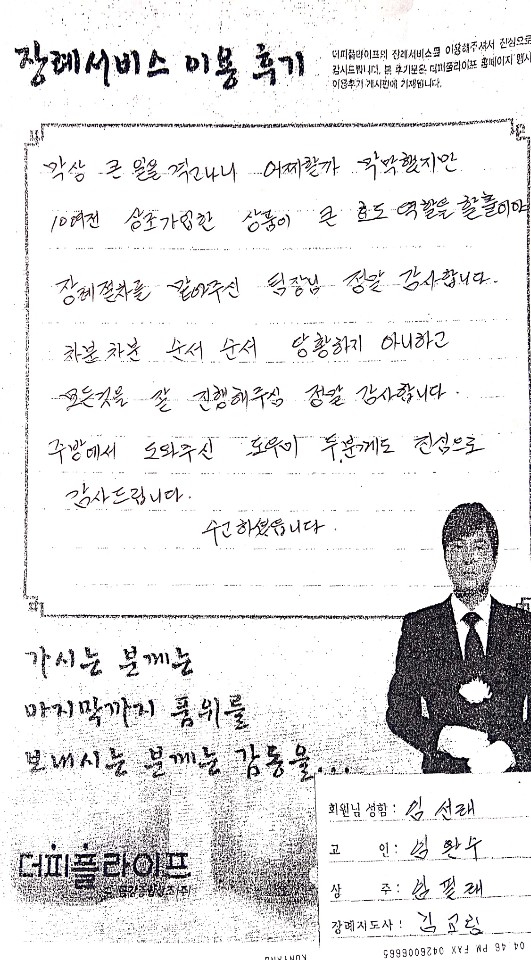 장례서비스 이용 후기
더피플라이프의 장례서비스를 이용해주셔서 진심으로
감사드립니다. 본 후기문은 더피플라이프 홈페이지 행사
이용후기 게시판에 기재됩니다.
막상 큰 일을 격고나니 어찌할까 막막했지만
10여전 상조가입한 상품이 큰 효도 역활을
장례절차를 맡아주신 팀장님 정말 감사합니다.
차분 차분 순서 순서 당황하지 아니하고
모든것을 잘 진행해주심 정말 감사합니다.
주방에서 도와주신 도우미 두분께도 진심으로
감사드립니다.
수고하셨읍니다.
가시는 분께는
마지막까지 품위를
보내시는 분께는 감동을...
더피플라이프
회원님 성함 : 임선래
고 인 : 임완수
상 주 : 임필래
장례지도사 : 김교림
04 46 PM FAX 0426006665